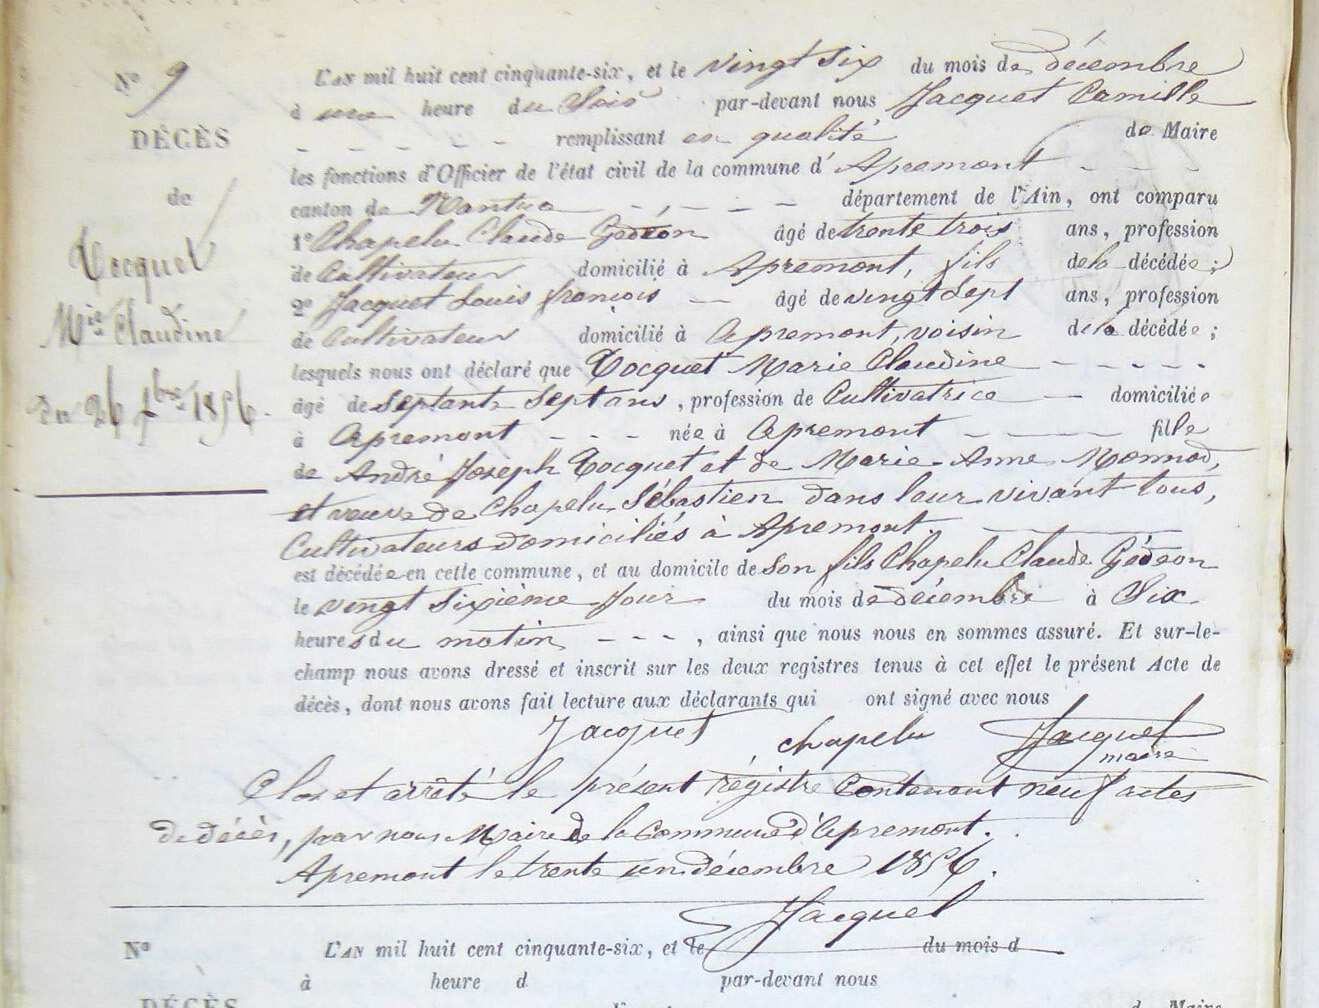 N° 9
DÉCÈS
de
Tocquet
Mie Claudine
du 26 Xbre 1856.
L'AN mil huit cent cinquante-six, et le vingt six du mois de décembre
à une heure du Soir par-devant nous Jacquet Camille
remplissant en qualité de Maire
les fonctions d'Officier de l'état civil de la commune d'Apremont
canton de Nantua département de l'Ain, ont comparu
1° Chapelu Claude Gédéon âgé de trente trois ans, profession
de Cultivateur domicilié à Apremont, fils de la décédée ;
2° Jacquet Louis françois âgé de vingt Sept ans, profession
de Cultivateur domicilié à Apremont, voisin de la décédée ;
lesquels nous ont déclaré que Tocquet Marie Claudine
âgé de Septante Sept ans, profession de Cultivatrice domiciliée
à Apremont née à Apremont fille
de André Joseph Tocquet et de Marie-Anne Monnod,
et veuve de Chapelu Sébastien dans leur vivant tous,
Cultivateurs domiciliés à Apremont.
est décédée en cette commune, et au domicile de Son fils Chapelu Claude Gédéon
le vingt Sixième Jour du mois de décembre à Six
heures du matin, ainsi que nous nous en sommes assuré. Et sur-le-
champ nous avons dressé et inscrit sur les deux registres tenus à cet effet le présent Acte de
décès, dont nous avons fait lecture aux déclarants qui ont signé avec nous
Jacquet chapelu Jacquet
maire
Clos et arrêté le présent régistre Contenant neuf actes
de décès, par nous Maire de la Commune d'Apremont.
Apremont le trente un décembre 1856.
Jacquet
N° L'AN mil huit cent cinquante-six, et le du mois d
à heure d par-devant nous
DÉCÈS de Maire